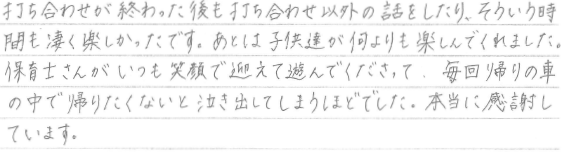 打ち合わせが終わった後も打ち合わせ以外の話をしたり、そういう時
間も凄く楽しかったです。あとは子供達が何よりも楽しんでくれました。
保育士さんがいつも笑顔で迎えて遊んでくださって、毎回帰りの車
の中で帰りたくないと泣き出してしまうほどでした。本当に感謝し
ています。